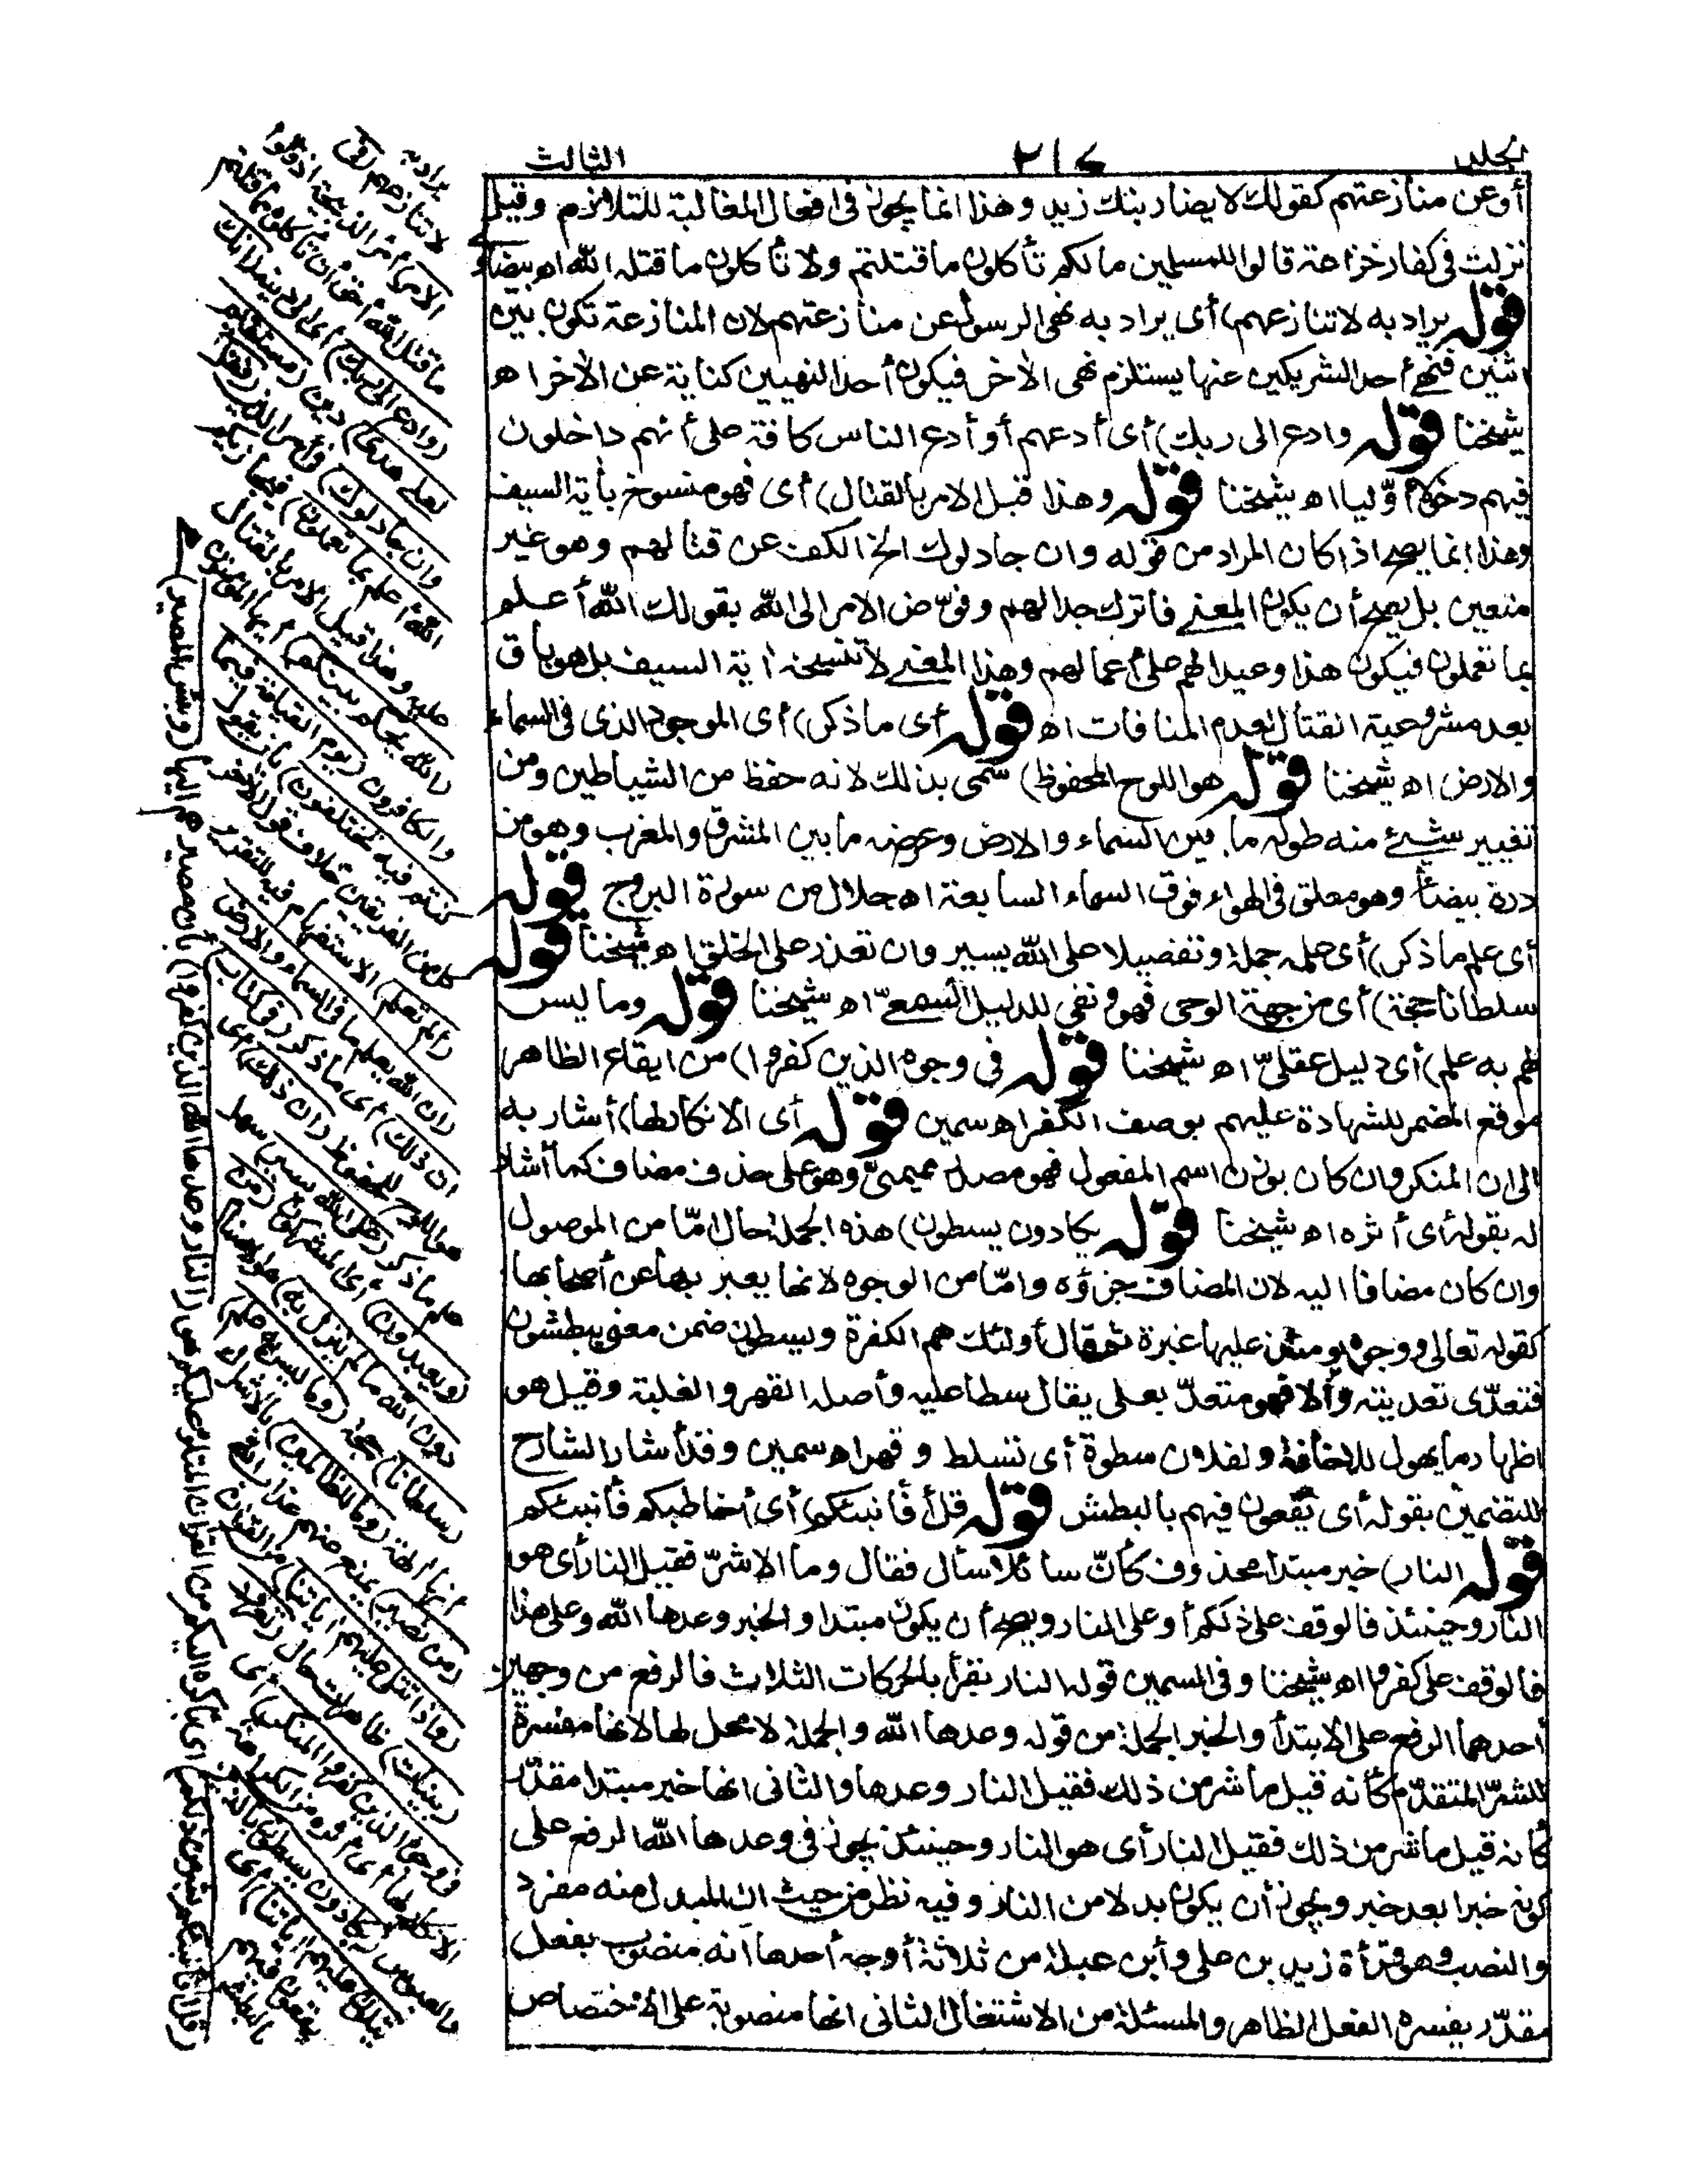 الثالث
٢١٤
أو عن منازعتهم كقولك لا يضاربنك زيد وهذا انما يجوز فى افعال المغالبة للتلازم وقيل
نزلت فى كفار خزاعة قالوا للمسلمين مالكم تأكلون ما قتلتم ولا تأكلون ما قتله الله اه بيضاوى
قوله يراد به لا تنازعهم) أى يراد به نهى الرسول عن منازعتهم لان المنازعة تكون بين
اثنين فنهى أحد الشريكين عنها يستلزم نهى الأخر فيكون أحد النهيين كناية عن الأخر اه
شيخنا قوله وادع الى ربك) أى أدعهم أو أدع الناس كافة على أنهم داخلون
فيهم دخولا أوّليا اه شيخنا قوله وهذا قبل الامر بالقتال) أى فهو منسوخ بأية السيف
وهذا انما يصح اذا كان المراد من قوله وان جادلوك الخ الكف عن قتالهم وهو غير
متعين بل يصح أن يكون المعنى فاترك جدالهم وفوّض الامر الى الله بقولك الله أعلم
بما تعملون فيكون هذا وعيدا لهم على أعمالهم وهذا المعنى لا تنسخه أية السيف بل هو باق
بعد مشروعية القتال لعدم المنافات اه قوله أى ما ذكر) أى الموجود الذى فى السماء
والارض اه شيخنا قوله هو اللوح المحفوظ) سمى بذلك لانه حفظ من الشياطين ومن
تغيير شئ منه طوله ما بين السماء والارض وعرضه ما بين المشرق والمغرب وهو من
درة بيضاء وهو معلق فى الهواء فوق السماء السابعة اه جلال من سورة البروج قوله
أى علم ما ذكر) أى علمه جملة وتفصيلا على الله يسير وان تعذر على الخلق اه شيخنا قوله
سلطانا حجة) أى من جهة الوحى فهو نفي للدليل السمعىّ اه شيخنا قوله وما ليس
لهم به علم) أى دليل عقلىّ اه شيخنا قوله فى وجوه الذين كفروا) من ايقاع الظاهر
موقع المضمر للشهادة عليهم بوصف الكفر اه سمين قوله أى الانكار لها) أشار به
الى ان المنكر وان كان بوزن اسم المفعول فهو مصدر ميمىّ وهو على حذف مضاف كما أشار
له بقوله أى أثره اه شيخنا قوله يكادون يسطون) هذه الجملة حال امّا من الموصول
وان كان مضافا اليه لان المضاف جزؤه وامّا من الوجوه لانها يعبر بها عن أصحابها
كقوله تعالى ووجوه يومئذ عليها غبرة ثم قال أولئك هم الكفرة ويسطون ضمن معنى يبطشون
فتعدّى تعديته والا فهو متعدّ بعلى يقال سطا عليه وأصله القهر والغلبة وقيل هو
اظهار ما يهول للاخافة ولفلان سطوة أى تسلط وقهر اه سمين وقد أشار الشارح
للتضمين بقوله أى يقعون فيهم بالبطش قوله قل أفأنبئكم) أى أخاطبكم فأنبئكم
قوله النار) خبر مبتدا محذوف كأنّ سائلا سأل فقال وما الاشرّ فقيل النار أى هو
النار وحينئذ فالوقف على ذلكم أو على النار ويصح أن يكون مبتدا والخبر وعدها الله وعلى هذا
فالوقف على كفروا اه شيخنا وفى السمين قوله النار يقرأ بالحركات الثلاث فالرفع من وجهين
أحدهما الرفع على الابتدأ والخبر الجملة من قوله وعدها الله والجملة لا محل لها لانها مفسرة
للشرّ المتقدّم كأنه قيل ما شر من ذلك فقيل النار وعدها والثانى انها خبر مبتدا مقدّر
كأنه قيل ما شر من ذلك فقيل النار أى هو النار وحينئذ يجوز فى وعدها الله الرفع على
كونه خبرا بعد خبر ويجوز أن يكون بدلا من النار وفيه نظر من حيث ان المبدل منه مفرد
والنصب وهو قرأة زيد بن على وأبن عبلة من ثلاثة أوجه أحدها انه منصوب بفعل
مقدّر يفسره الفعل الظاهر والمسئلة من الاشتغال الثانى انها منصوبة على الاختصاص
يراد به
لا تنازعهم (فى
الامر) أمر الذبيحة اذ قالوا
ما قتل الله أحق أن تأكلوه مما قتلتم
(وادع الى ربك) أى الى دينه (انك
لعلى هدى) دين (مستقيم
وان جادلوك) فى أمر الدين (فقل
الله أعلم بما تعملون) فيجازيكم
عليه وهذا قبل الامر بالقتال
(الله يحكم بينكم) أيها المؤمنون
والكافرون (يوم القيامة فيما
كنتم فيه تختلفون) بأن يقول
كل من الفريقين خلاف قول الأخر
(ألم تعلم) الاستفهام فيه للتقرير
(ان الله يعلم ما فى السماء والارض
ان ذلك) أى ما ذكر (فى كتاب)
هو اللوح المحفوظ (ان ذلك) أى
علم ما ذكر (على الله يسير) سهل
(ويعبدون) أى المشركون (من
دون الله ما لم ينزل به) هو الاصنام
(سلطانا) حجة (وما ليس لهم به علم)
أنها ألهة (وما للظالمين) بالاشراك
(من نصير) يمنع عنهم عذاب الله
(واذا تتلى عليهم أياتنا) من القرأن
(بينات) ظاهرات حال (تعرف
فى وجوه الذين كفروا المنكر) أى
الانكار لها أى أثره من الكراهة
والعبوس (يكادون يسطون بالذين
يتلون عليهم أياتنا) أى
يقعون فيهم
بالبطش
(قل أفأنبئكم بشر من ذلكم) أى بأكره اليكم من القرأن المتلو عليكم هو (النار وعدها الله الذين كفروا) بأن مصيرهم اليها (وبئس المصير)